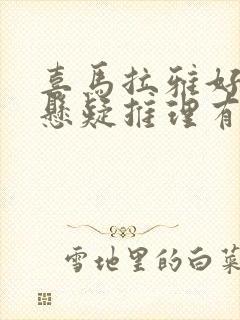 喜马拉雅好
悬疑推理有
雪地里的白菜